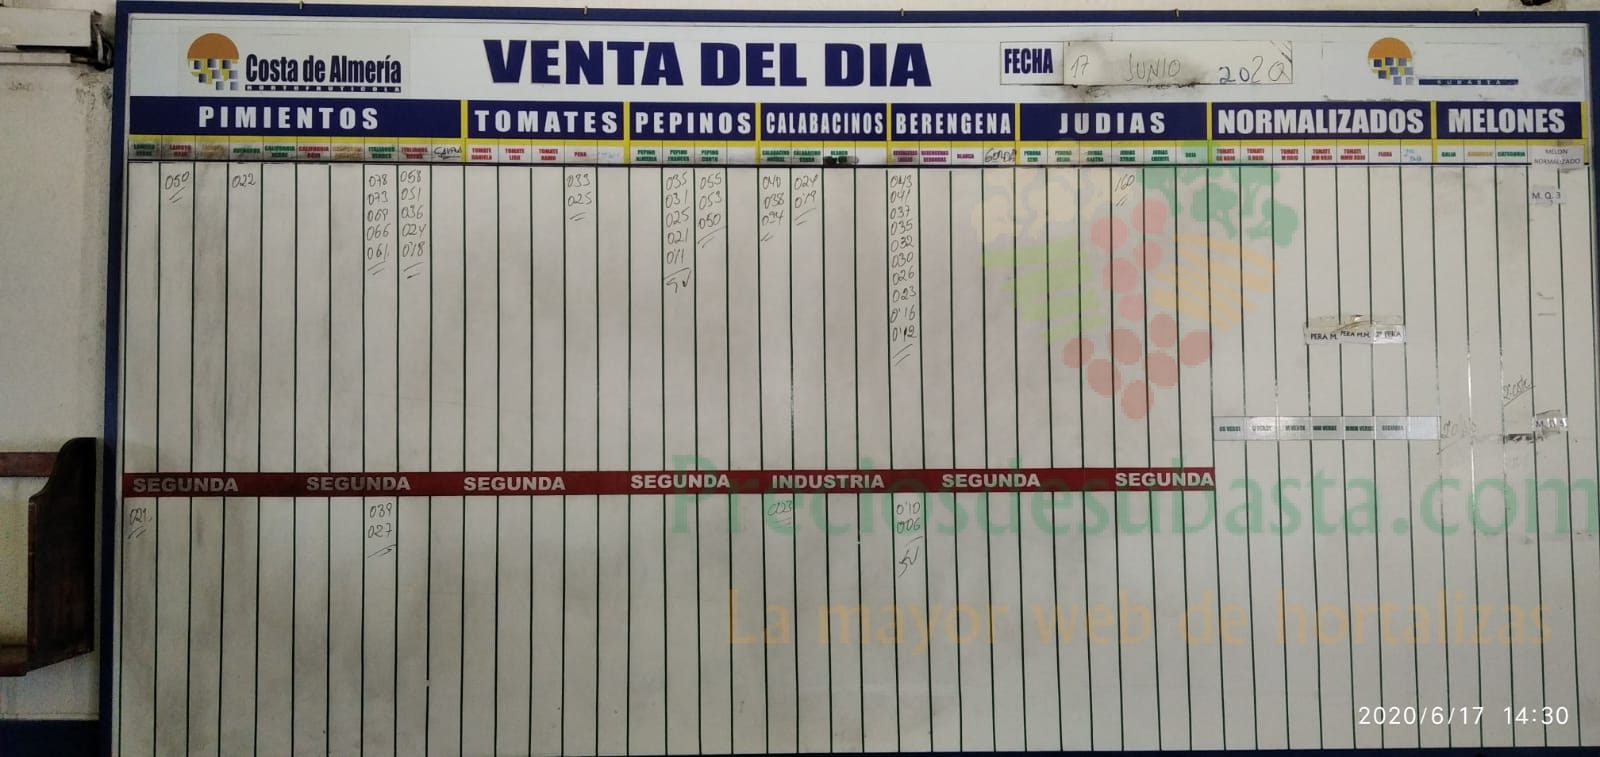 Costa de Almería
HORTOFRUTICOLA
VENTA DEL DIA
FECHA 17 JUNIO 2020
SUBASTA
PIMIENTOS TOMATES PEPINOS CALABACINOS BERENGENA JUDIAS NORMALIZADOS MELONES
LAMUYO VERDE LAMUYO ROJO CALIFORNIA VERDE CALIFORNIA ROJO ITALIANOS VERDES ITALIANOS ROJOS TOMATE DANIELA TOMATE LISO TOMATE RAMO PERA PEPINO ALMERIA PEPINO FRANCES PEPINO CORTO CALABACINO CALABACINO GORDO BLANCO BERENGENAS LARGAS BERENGENAS REDONDAS BLANCA GORDA PERONA PERONA JUDIAS STRIKE TOMATE GG ROJO TOMATE G ROJO TOMATE M ROJO TOMATE MM ROJO TOMATE MMM ROJO PERA GALIA CATEGORIA MELON NORMALIZADO
050 022 078 058 033 035 055 040 024 043 160
073 051 025 031 053 038 019 041 M. Q. 3
069 036 025 050 034 037
066 024 021 035
061 018 011 032
SV 030
026
023
0'16
0'12
PERA M. PERA M.N. 2ª PERA
GG VERDE G VERDE M VERDE MM VERDE MMM VERDE SEGUNDA
SEGUNDA SEGUNDA SEGUNDA SEGUNDA INDUSTRIA SEGUNDA SEGUNDA
021 039 003 0'10
027 006
SV
Preciosdesubasta.com
La mayor web de hortalizas
2020/6/17 14:30